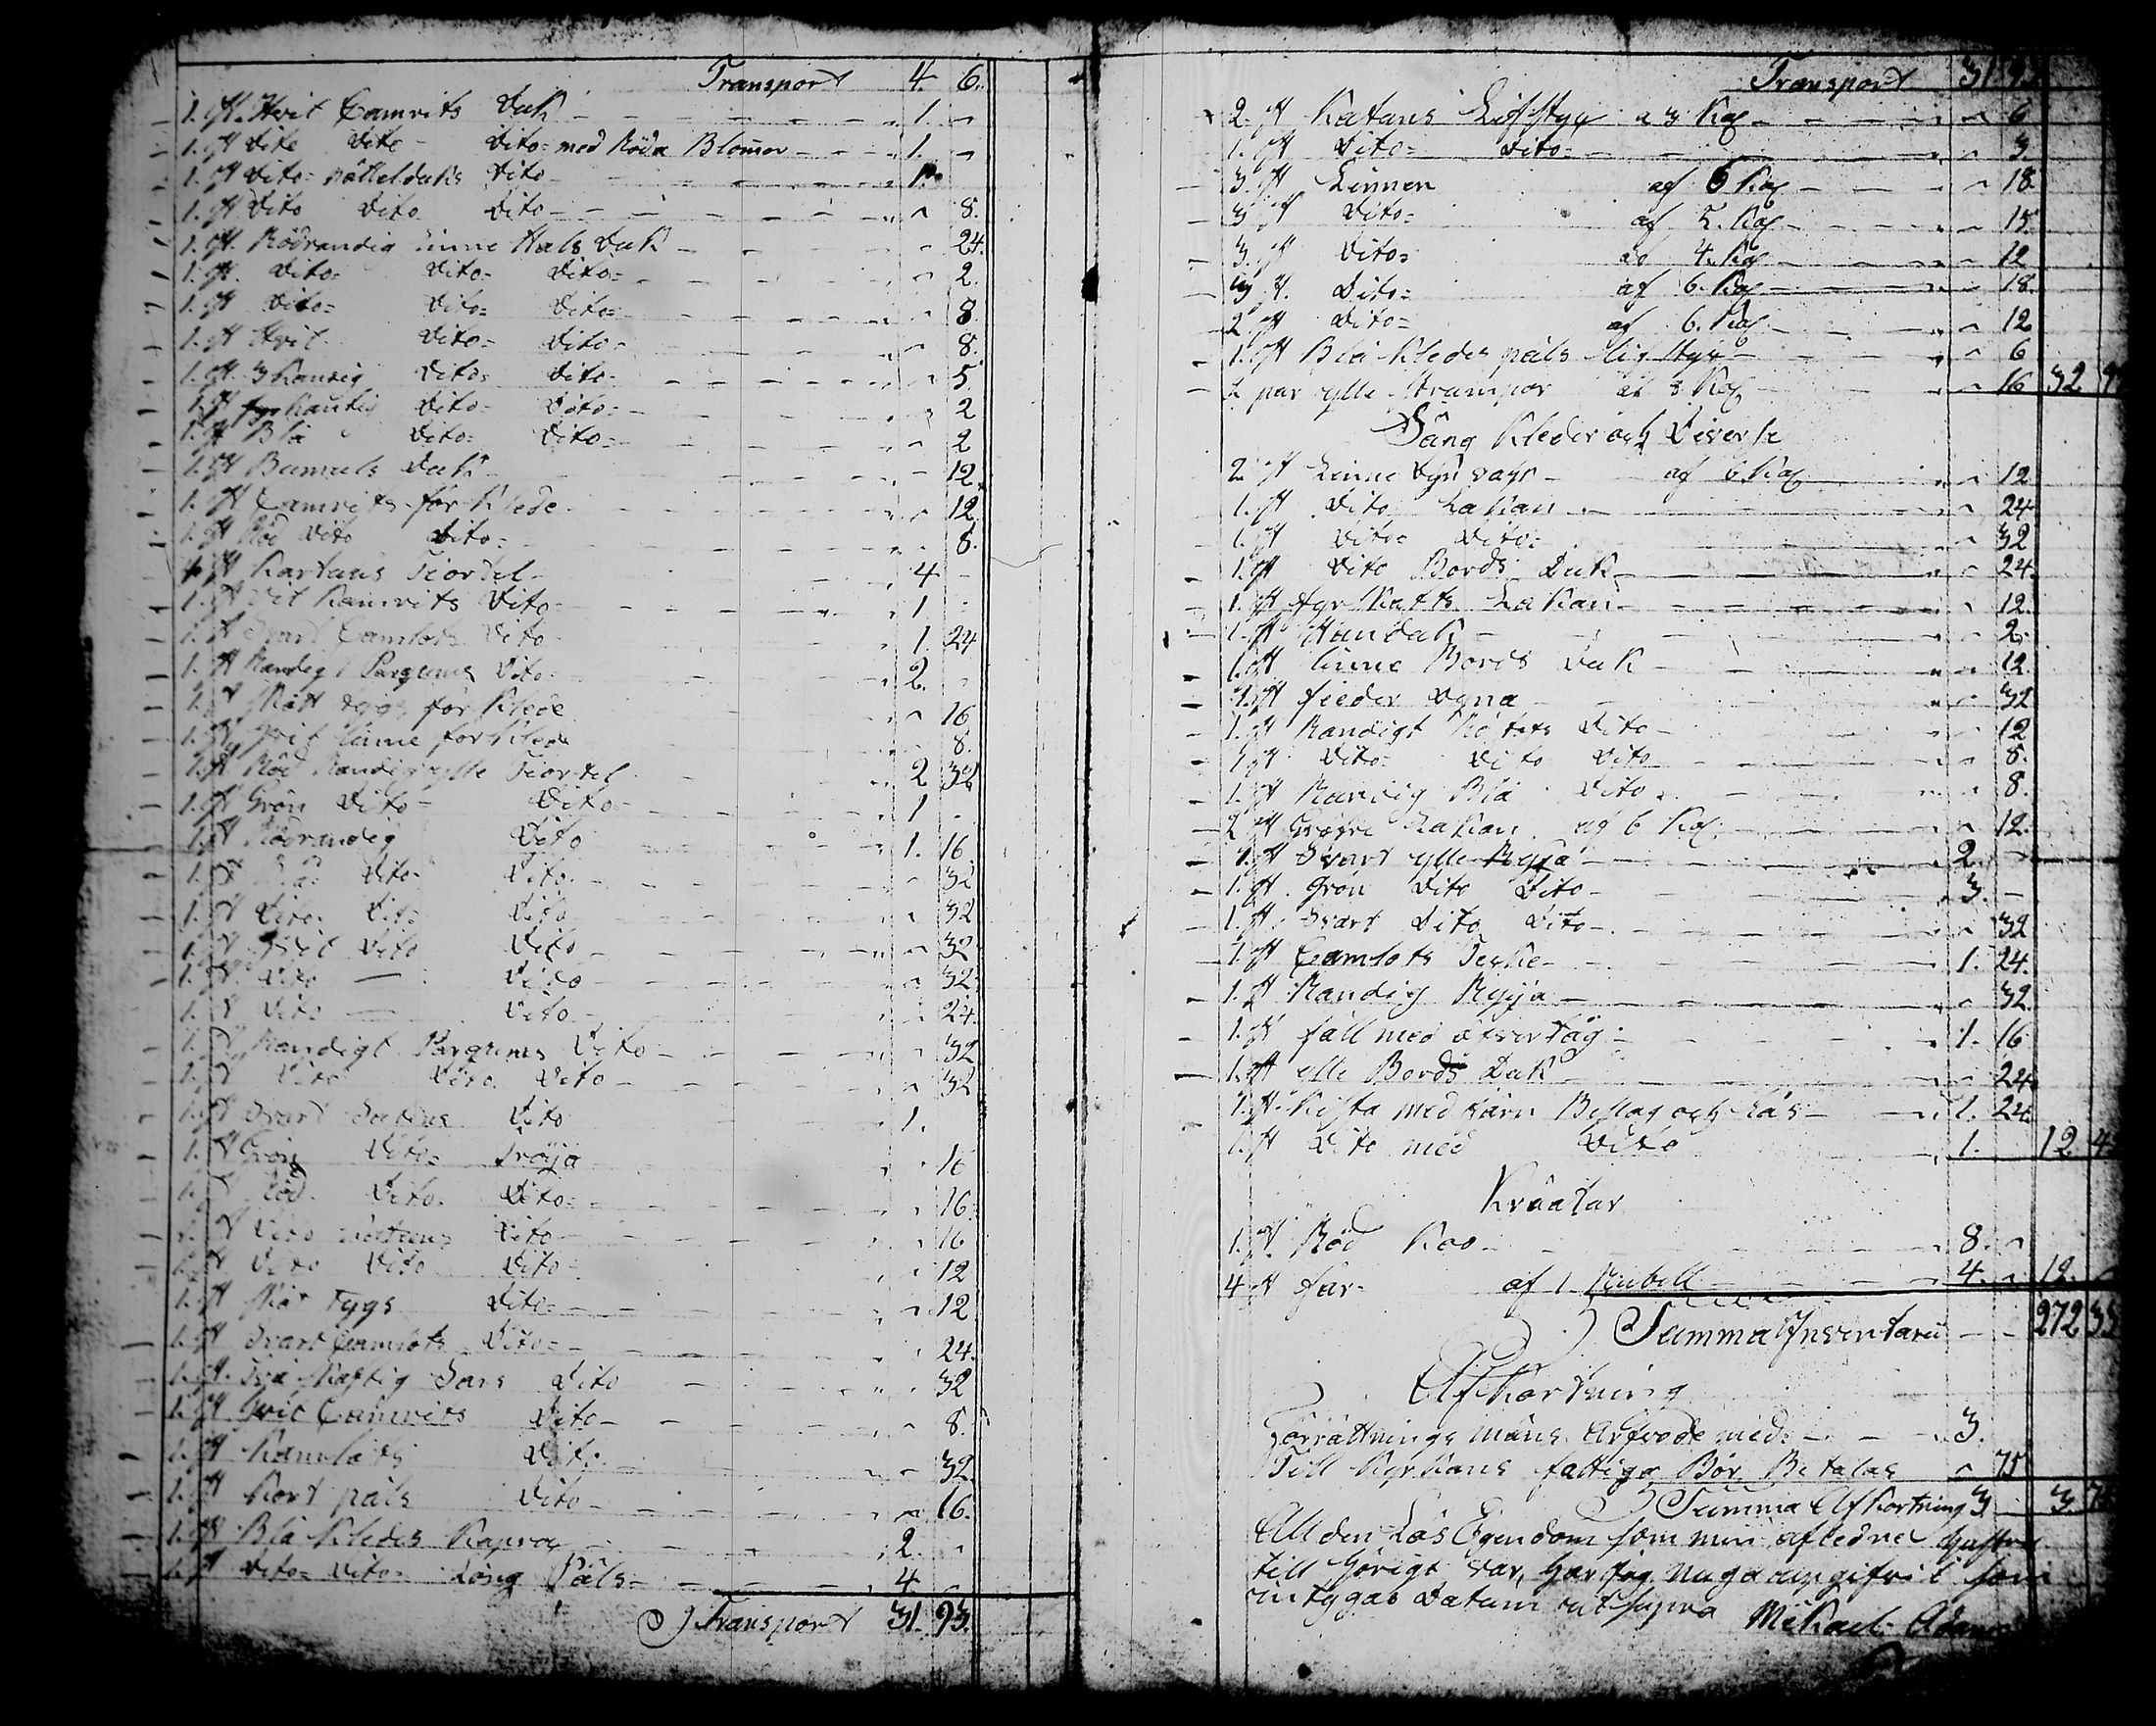 Transport 4. 6.
1. st. Hvit Camrits Duk 1.
1. st Dito Dito Dito med Röda Blomor 1.
1. st Dito nättelduks Dito 1.
1. st Dito Dito Dito 8.
1. st. Rödrandig linne Hals Duk 24.
1. st. Dito Dito Dito 2.
1. st Dito Dito Dito 8.
1. st Hvit Dito Dito 8.
1. st. 3 Kantig Dito Dito 5
1. st fyrkantig Dito Dito 2
1. st Blå Dito Dito 2
1. st Bumuls Duk 12
1. st Camrits förklede 12
1. st Röd Dito Dito 8.
st Kartuns Tiortel 4
1. st Vit Kamrits Dito 1
1. st Svart Camlots Dito 1. 24
1. st Randigt Pargums Dito 2.
1. st förklede 16
1. st Hvit linne förklede 8.
1. st Röd Randig ylle Tiortel 2 32
1. st Grön Dito Dito 1
1. st Rödrandig Dito 1. 16
1. st Blå Dito Dito 32
1. st Dito Dito Dito 32
1. st Hvit Dito Dito 32
1. st Dito Dito 32
1. st Dito Dito 24.
1. st Randigt Pargums Dito 32
1. st Dito Dito Dito 32
1. st Svart Dito 1.
1. st Grön Dito Tröija 16
1. st Röd Dito Dito 16
1. st Dito Dito 16
1. st Dito Dito Dito 12
1. st Tygs Dito 12
1. st Svart Camlots Dito 24.
1. st. Två Skaftig Dito 32
1. st Hvit Camrits Dito 8.
1. st Kamlots Dito 32
1. st Kort päls Dito 16.
1. st Blå Kledes 2.
1. st Dito Dito Lång Päls 4
Transport 31. 93.
Transport 31 93
2. st Katuns Lifstyg a 3 Kop 6
1. st Dito Dito 3.
3. st Linnen af 6 Kop 18
3 st Dito af 5. Kop 15
3. st Dito af 4. Kop 12
3 st. Dito af 6. Kop 18.
2 st Dito af 6. Kop 12
1. st Blå Kledes päls lifstyg 6
2 par ylle Strumpor af 8 Kop 16 32
Säng Kleder och Diverse
2. st Linne Dyn vahr af 6 Kop 12
1. st Dito Lakan 24
1. st Dito Dito 32
1. st Dito Bords Duk 24.
1. st Lakan 12.
1. st Handuk 2.
1. st linne Bords Duk 12.
1. st fieder Dyna 32
1. st Randigt Dito 12
1 st Dito Dito Dito 8.
1. st Randig Blå Dito 8.
2 st Gröfre Lakan af 6 Kop 12.
1. st Svart ylle Ryja 2.
1. st. Grön Dito Dito 3.
1. st. Svart Dito Dito 32
1. st Camlots Teckie 1. 24.
1. st Randig Ryja 32.
1. st fäll med öfvertåg 1. 16
1. st ylle Bords Duk 24.
1. st Kista med Järn Beslag och Lås 1. 24
1. st Dito med Dito 1. 12.
Kräatur
1. st. Röd Koo 8.
4 st får af 1 Rubell 4. 12.
Summa Inventarii 272
Afkortning
Förrättnings Mäns Arfvode med 3.
Till Kyrkans fattiga Bör Betalas 75
Summa Afkortning 3. 3
All den Lös Egendom som min afledne hustru
till hörigt var, har jag noga angifvit som
intygas Datum ut supra Mikael